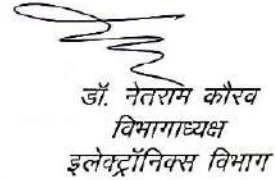 डॉ. नेतराम कौरव
विभागाध्यक्ष
इलेक्ट्रॉनिक्स विभाग